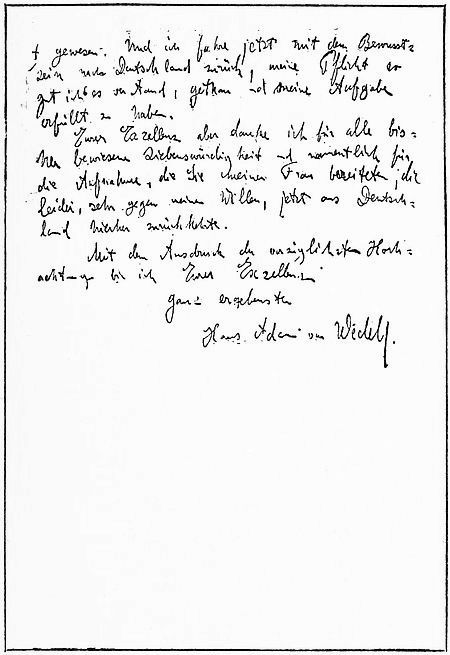 gewesen. Und ich fahre jetzt mit dem Bewusst=
sein nach Deutschland zurück, meine Pflicht so
gut ich es verstand, gethan und meine Aufgabe
erfüllt zu haben.
Eurer Exzellenz aber danke ich für alle bis=
her bewiesene Liebenswürdigkeit und namentlich für
die Aufnahme, die Sie meiner Frau bereiteten, die
leider, sehr gegen meinen Willen, jetzt aus Deutsch=
land hierher zurückkehrte.
Mit dem Ausdruck der vorzüglichsten Hoch=
achtung bin ich Eurer Exzellenz
ganz ergebenster
Hans Adam von Wedell.